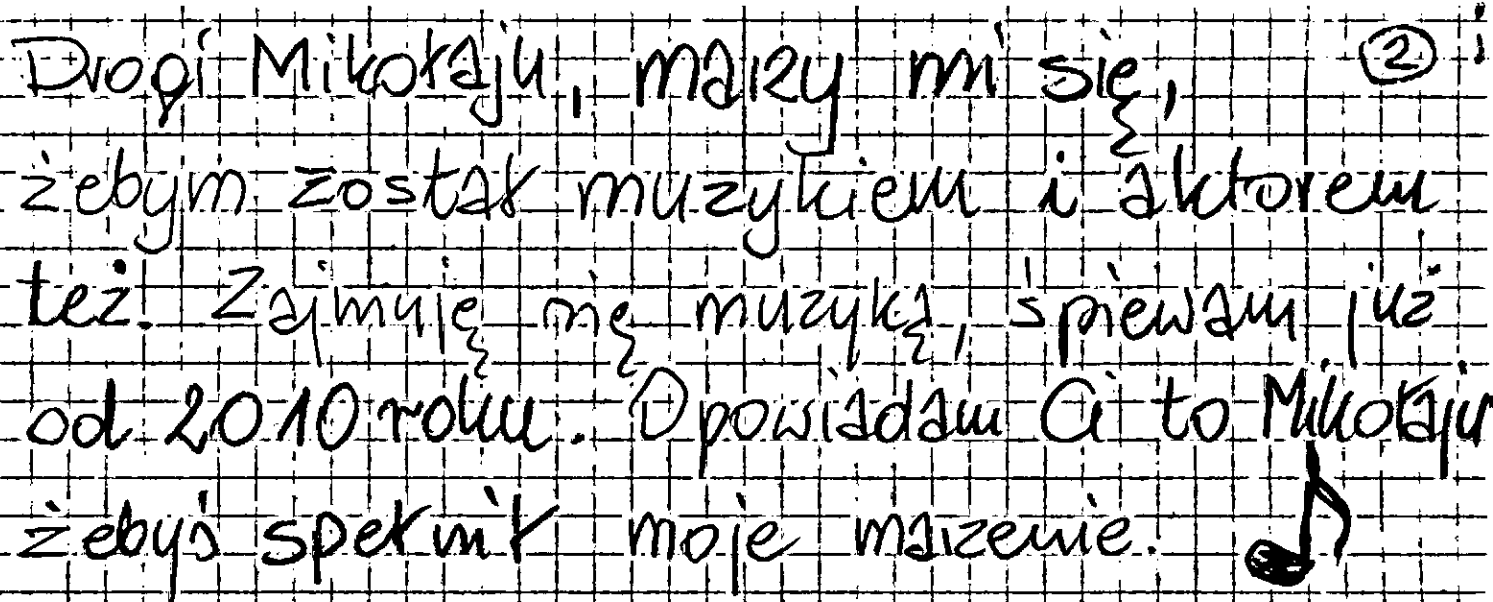 Drogi Mikołaju, marzy mi się, ②
żebym został muzykiem i aktorem
też. Zajmuję się muzyką, śpiewam już
od 2010 roku. Opowiadam Ci to Mikołaju
żebyś spełnił moje marzenie.